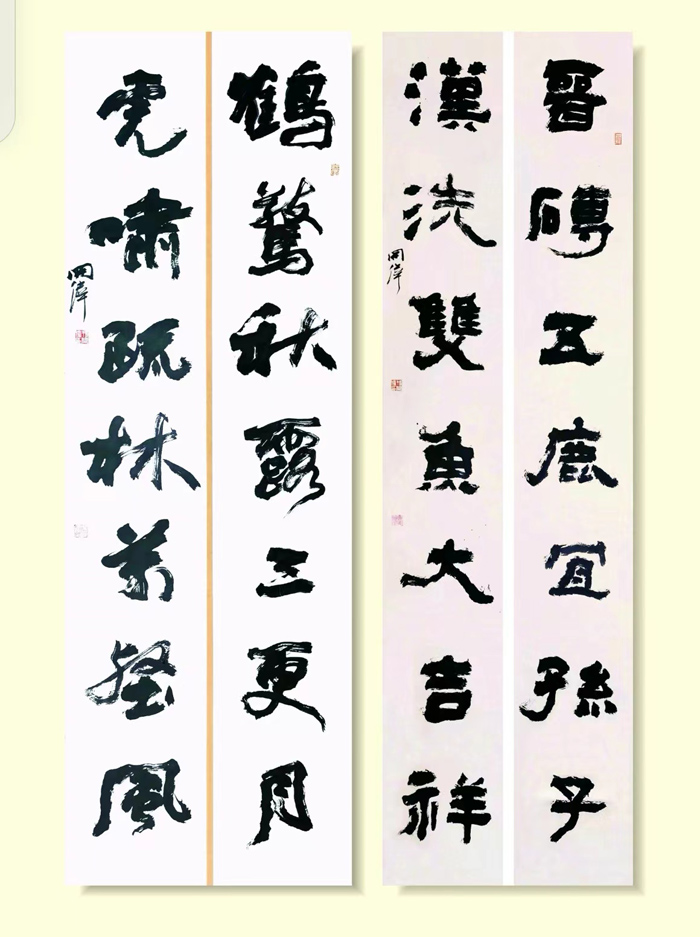 晉磚五鹿宜孫子
漢洗雙魚大吉祥
鶴驚秋露三更月
虎嘯疏林萬壑風